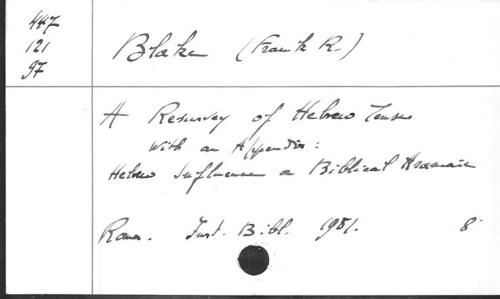 447
121
97
Blake (Frank R.)
A Resurvey of Hebrew Tenses
With an Appendix:
Hebrew Influence on Biblical Aramaic
Roma. Inst. Bibl. 1951. 8°